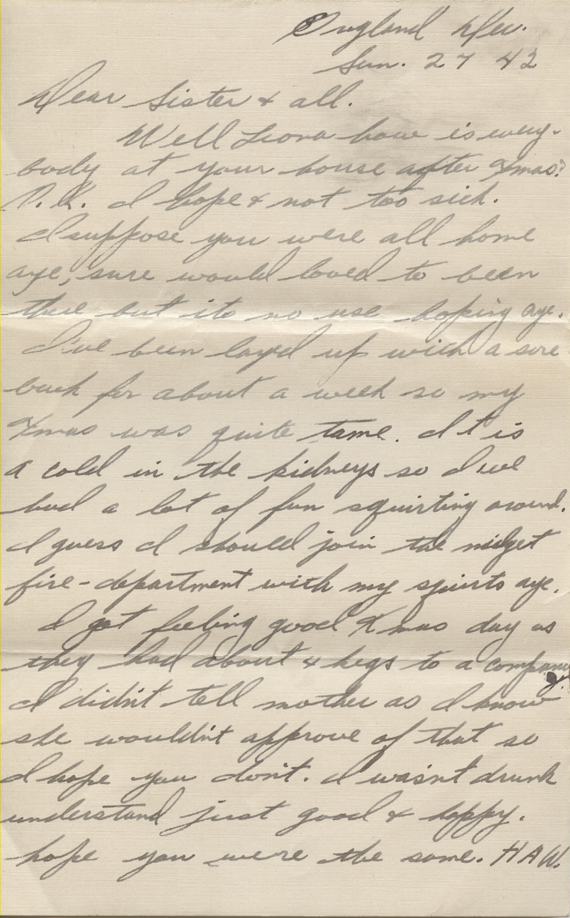 England Dec.
Sun. 27 42
Dear Sister & all.
Well Leona how is every-
body at your house after Xmas?
O.K. I hope & not too sick.
I suppose you were all home
aye, sure would loved to been
there but its no use hoping aye.
I've been layed up with a sore
back for about a week so my
Xmas was quite tame. It is
a cold in the kidneys so I've
had a lot of fun squirting around.
I guess I should join the midget
fire-department with my squirts aye.
I got feeling good Xmas day as
they had about 4 kegs to a company
I didn't tell mother as I know
she wouldn't approve of that so
I hope you don't. I wasn't drunk
understand just good & happy.
hope you were the same. HAW.